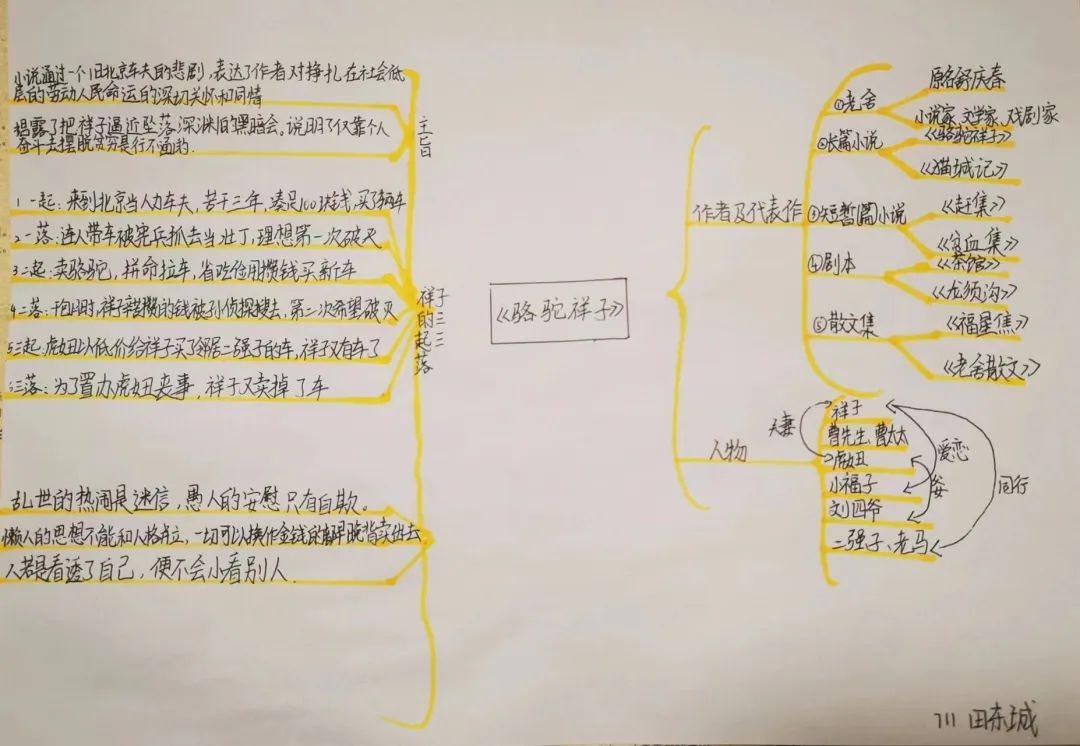 小说通过一个旧北京车夫的悲剧，表达了作者对挣扎在社会低
层的劳动人民命运的深切关怀和同情
揭露了把祥子逼近坠落深渊旧黑暗会，说明了仅靠个人
奋斗去摆脱贫穷是行不通的.
主旨
1 一起：来到北京当人力车夫，苦干三年，凑足100块钱，买了辆车
2 一落：连人带车被宪兵抓去当壮丁，理想第一次破灭
3 二起：卖骆驼，拼命拉车，省吃俭用攒钱买新车
4 二落：干包月时，祥子辛苦攒的钱被孙侦探搜去，第二次希望破灭
5 三起：虎妞以低价给祥子买了邻居二强子的车，祥子又有车了
6 三落：为了置办虎妞丧事，祥子又卖掉了车
祥子的三起三落
乱世的热闹是迷信，愚人的安慰只有自欺。
懒人的思想不能和人格并立，一切可以换作金钱的都早晚皆卖出去
人若是看透了自己，便不会小看别人.
《骆驼祥子》
作者及代表作
①老舍
原名舒庆春
小说家、文学家、戏剧家
②长篇小说
《骆驼祥子》
《猫城记》
③短暂(篇)小说
《赶集》
《贫血集》
④剧本
《茶馆》
《龙须沟》
⑤散文集
《福星焦》
《老舍散文》
人物
祥子
曹先生、曹太太
虎妞
小福子
刘四爷
二强子、老马
夫妻
爱恋
同行
711 田东城